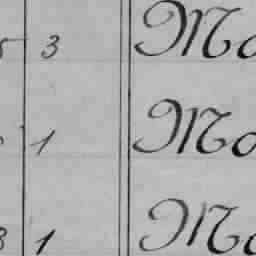 5 3 Ma
1 Ma
3 1 Ma